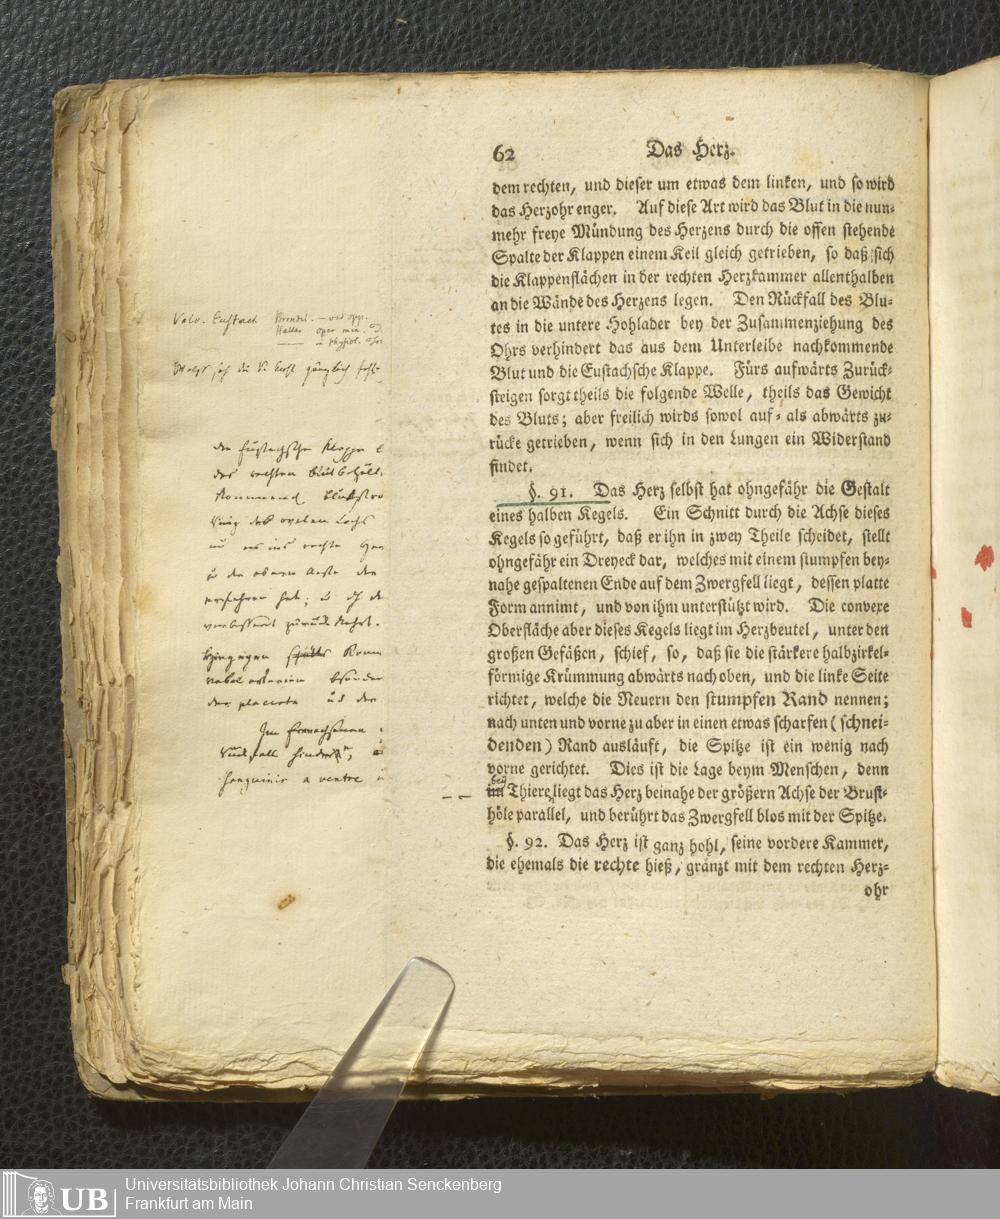 62 Das Herz.
dem rechten, und dieser um etwas dem linken, und so wird
das Herzohr enger. Auf diese Art wird das Blut in die nun-
mehr freye Mündung des Herzens durch die offen stehende
Spalte der Klappen einem Keil gleich getrieben, so daß sich
die Klappenflächen in der rechten Herzkammer allenthalben
an die Wände des Herzens legen. Den Rückfall des Blu-
tes in die untere Hohlader bey der Zusammenziehung des
Ohrs verhindert das aus dem Unterleibe nachkommende
Blut und die Eustachsche Klappe. Fürs aufwärts Zurück-
steigen sorgt theils die folgende Welle, theils das Gewicht
des Bluts; aber freilich wirds sowol auf- als abwärts zu-
rücke getrieben, wenn sich in den Lungen ein Widerstand
findet.
§. 91. Das Herz selbst hat ohngefähr die Gestalt
eines halben Kegels. Ein Schnitt durch die Achse dieses
Kegels so geführt, daß er ihn in zwey Theile scheidet, stellt
ohngefähr ein Dreyeck dar, welches mit einem stumpfen bey-
nahe gespaltenen Ende auf dem Zwergfell liegt, dessen platte
Form annimt, und von ihm unterstützt wird. Die convexe
Oberfläche aber dieses Kegels liegt im Herzbeutel, unter den
großen Gefäßen, schief, so, daß sie die stärkere halbzirkel-
förmige Krümmung abwärts nach oben, und die linke Seite
richtet, welche die Neuern den stumpfen Rand nennen;
nach unten und vorne zu aber in einen etwas scharfen (schnei-
denden) Rand ausläuft, die Spitze ist ein wenig nach
vorne gerichtet. Dies ist die Lage beym Menschen, denn
bey
im Thieren liegt das Herz beinahe der größern Achse der Brust-
höle parallel, und berührt das Zwergfell blos mit der Spitze.
§. 92. Das Herz ist ganz hohl, seine vordere Kammer,
die ehemals die rechte hieß, gränzt mit dem rechten Herz-
ohr
Valv. Eustach
Haller oper min.
der Eustachschen Klappe
des rechten
des ovalen Lochs
ins rechte
der oberen
erfahren hat;
zurück kehrt.
hingegen
der placenta und der
Im Erwachsenen
sanguinis a ventre
UB
Universitätsbibliothek Johann Christian Senckenberg
Frankfurt am Main